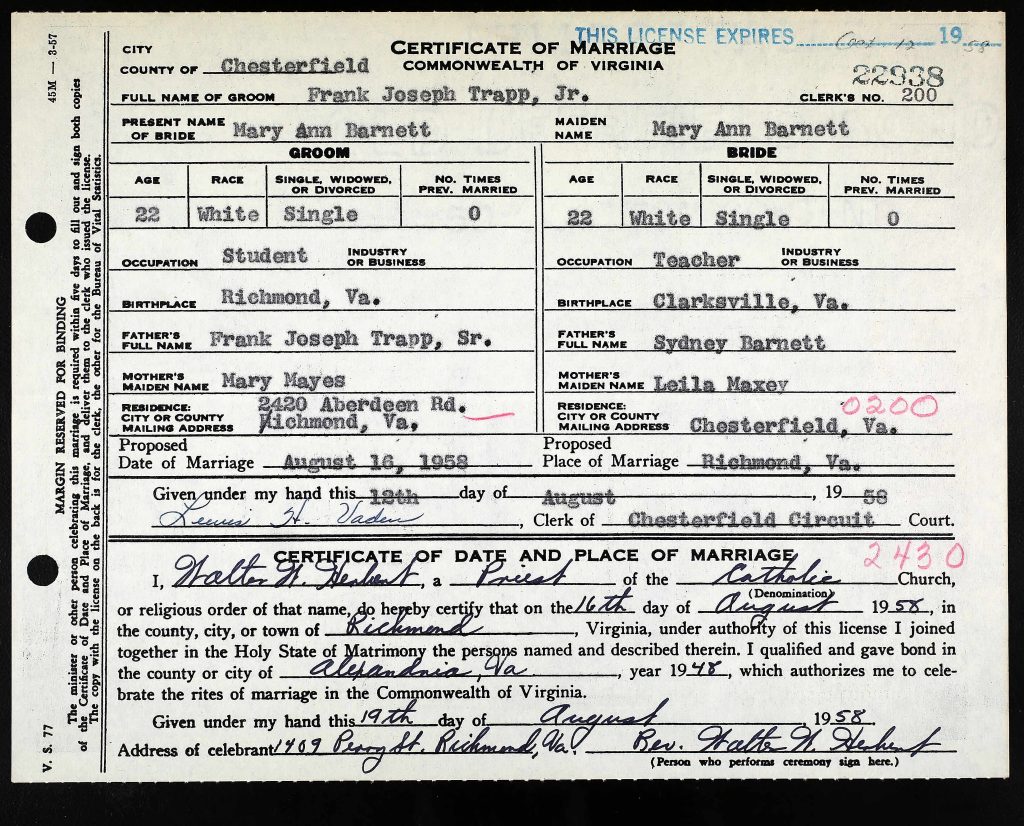 THIS LICENSE EXPIRES 19 58
CERTIFICATE OF MARRIAGE
COMMONWEALTH OF VIRGINIA
CITY
COUNTY OF Chesterfield
22938
FULL NAME OF GROOM Frank Joseph Trapp, Jr. CLERK'S NO. 200
PRESENT NAME OF BRIDE Mary Ann Barnett MAIDEN NAME Mary Ann Barnett
GROOM BRIDE
AGE RACE SINGLE, WIDOWED, OR DIVORCED NO. TIMES PREV. MARRIED AGE RACE SINGLE, WIDOWED, OR DIVORCED NO. TIMES PREV. MARRIED
22 White Single 0 22 White Single 0
OCCUPATION Student INDUSTRY OR BUSINESS OCCUPATION Teacher INDUSTRY OR BUSINESS
BIRTHPLACE Richmond, Va. BIRTHPLACE Clarksville, Va.
FATHER'S FULL NAME Frank Joseph Trapp, Sr. FATHER'S FULL NAME Sydney Barnett
MOTHER'S MAIDEN NAME Mary Mayes MOTHER'S MAIDEN NAME Leila Maxey
RESIDENCE: CITY OR COUNTY MAILING ADDRESS 2420 Aberdeen Rd. Richmond, Va. RESIDENCE: CITY OR COUNTY MAILING ADDRESS 0200 Chesterfield, Va.
Proposed Date of Marriage August 16, 1958 Proposed Place of Marriage Richmond, Va.
Given under my hand this 12th day of August, 19 58
Lewis H. Vaden, Clerk of Chesterfield Circuit Court.
CERTIFICATE OF DATE AND PLACE OF MARRIAGE 2430
I, Walter W. Herbert, a Priest of the Catholic Church,
(Denomination)
or religious order of that name, do hereby certify that on the 16th day of August 1958, in
the county, city, or town of Richmond, Virginia, under authority of this license I joined
together in the Holy State of Matrimony the persons named and described therein. I qualified and gave bond in
the county or city of Alexandria, Va., year 1948, which authorizes me to cele-
brate the rites of marriage in the Commonwealth of Virginia.
Given under my hand this 19th day of August 1958.
Address of celebrant 1409 Perry St. Richmond, Va. Rev. Walter W. Herbert
(Person who performs ceremony sign here.)
45M — 3-57
MARGIN RESERVED FOR BINDING
The minister or other person celebrating this marriage is required within five days to fill out and sign both copies
of the Certificate of Date and Place of Marriage, and deliver them to the clerk who issued the license.
The copy with the license on the back is for the clerk, the other for the Bureau of Vital Statistics.
V. S. 77